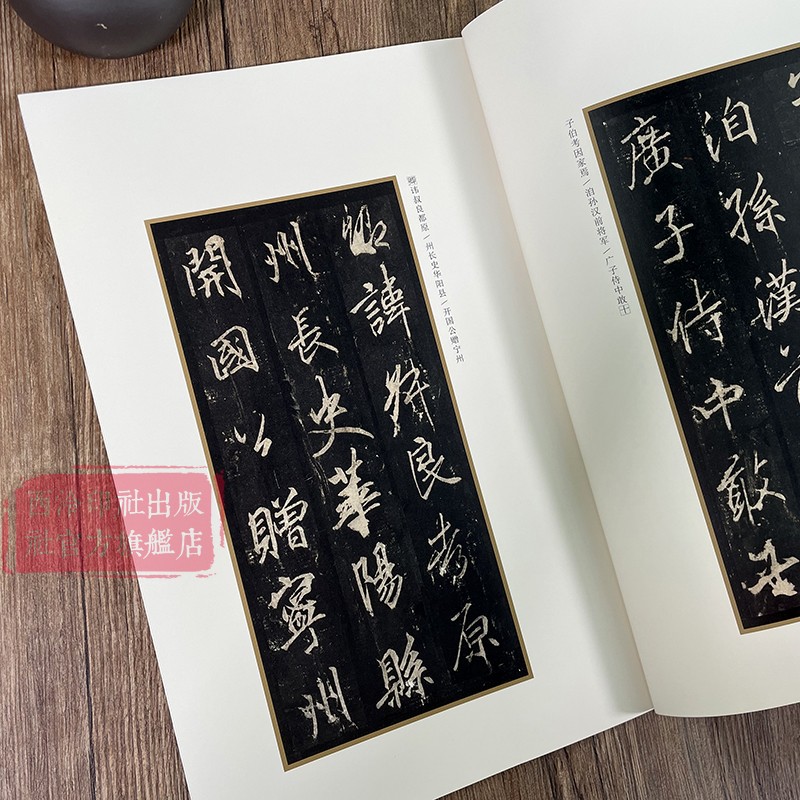 洎孫漢前
廣子侍中敢
子伯考因家焉/洎孙汉前将军/广子侍中敢十
卿讳叔良都原/州长史华阳县/开国公赠宁州
卿諱叔良都原
州長史華陽縣
開國公贈寧州
西泠印社出版
社官方旗艦店